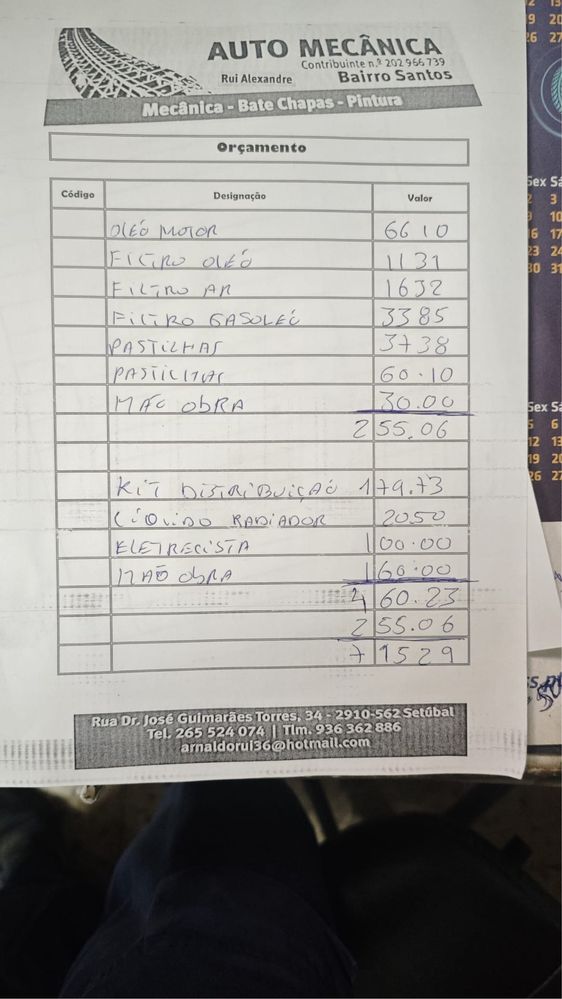 AUTO MECÂNICA
Contribuinte n.º 202 966 739
Rui Alexandre Bairro Santos
Mecânica - Bate Chapas - Pintura
Orçamento
Código Designação Valor
OLÉO MOTOR 66 10
FILTRO OLÉO 11 31
FILTRO AR 16 32
FILTRO GASOLEÓ 33 85
PASTILHAS 37 38
PASTILHAS 60.10
MÃO OBRA 30.00
255.06
KIT DISTRIBUIÇAÕ 179.73
LÍQUIDO RADIADOR 20 50
ELETRECISTA 100.00
MÃO OBRA 160.00
460.23
255.06
715 29
Rua Dr. José Guimarães Torres, 34 - 2910-562 Setúbal
Tel. 265 524 074 | Tlm. 936 362 886
arnaldorui36@hotmail.com
12 13
19 20
26 27
Sex Sá
2 3
9 10
16 17
23 24
30 31
Sex Sá
5 6
12 13
19 20
26 27